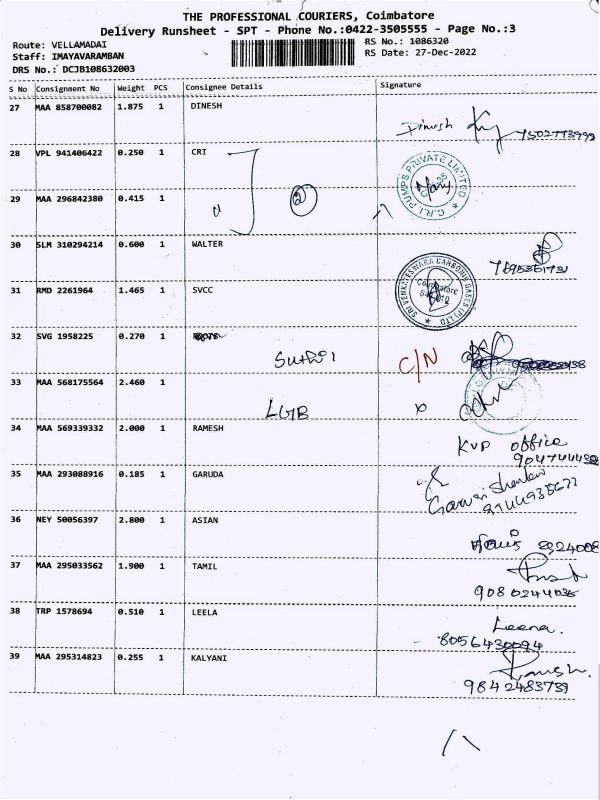 THE PROFESSIONAL COURIERS, Coimbatore
Delivery Runsheet - SPT - Phone No.:0422-3505555 - Page No.:3
Route: VELLAMADAI
RS No.: 1086320
Staff: IMAYAVARAMBAN
RS Date: 27-Dec-2022
DRS No.: DCJB108632003
S No Consignment No Weight PCS Consignee Details Signature
27 MAA 858700082 1.875 1 DINESH
Dinesh
28 VPL 941406422 0.250 1 CRI
C.R.I. PUMPS PRIVATE LIMITED
29 MAA 296842380 0.415 1
2
30 SLM 310294214 0.600 1 WALTER
31 RMD 2261964 1.465 1 SVCC
SRI VENKATESWARA CARBONIC GASES (P) LTD
Coimbatore
32 SVG 1958225 0.270 1
Suthi1 C/N
33 MAA 568175564 2.460 1
LGB
34 MAA 569339332 2.000 1 RAMESH
KVP office
904744438
35 MAA 293088916 0.185 1 GARUDA
36 NEY 50056397 2.800 1 ASIAN
37 MAA 295033562 1.900 1 TAMIL
9080244036
38 TRP 1578694 0.510 1 LEELA
Leena.
8056430094
39 MAA 295314823 0.255 1 KALYANI
9842483739